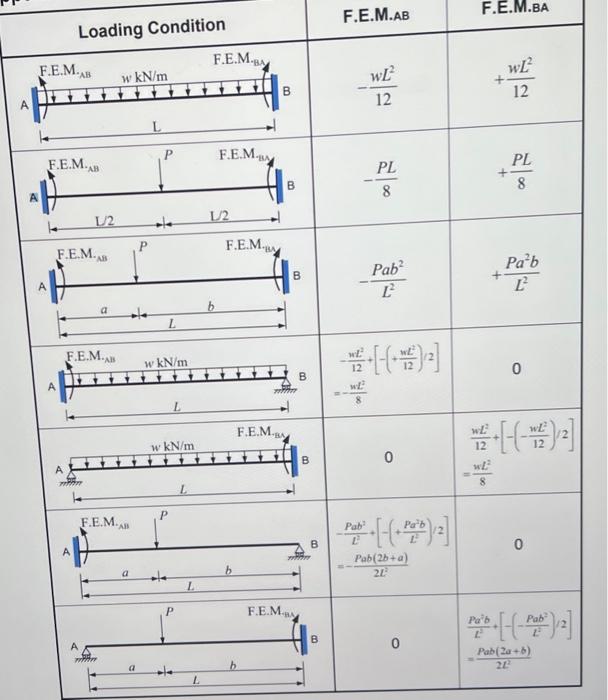 Loading Condition F.E.M.AB F.E.M.BA
F.E.M.AB w kN/m F.E.M.BA
A B
L
-wL²/12 +wL²/12
F.E.M.AB P F.E.M.BA
A B
L/2 L/2
-PL/8 +PL/8
F.E.M.AB P F.E.M.BA
A B
a b
L
-Pab²/L² +Pa²b/L²
F.E.M.AB w kN/m
A B
L
-wL²/12+[-(+wL²/12)/2] 0
=-wL²/8
F.E.M.BA
w kN/m
A B
L
0 wL²/12+[-(-wL²/12)/2]
=wL²/8
F.E.M.AB P
A B
a b
L
-Pab²/L²+[-(+Pa²b/L²)/2] 0
=-Pab(2b+a)/2L²
P F.E.M.BA
A B
a b
L
0 Pa²b/L²+[-(-Pab²/L²)/2]
=Pab(2a+b)/2L²